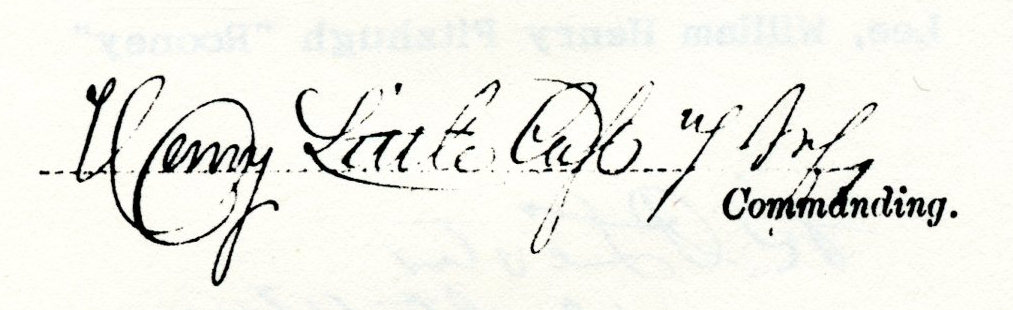 Lee, William Henry Fitzhugh "Rooney"
Henry Little Capt 7 Infy
Commanding.